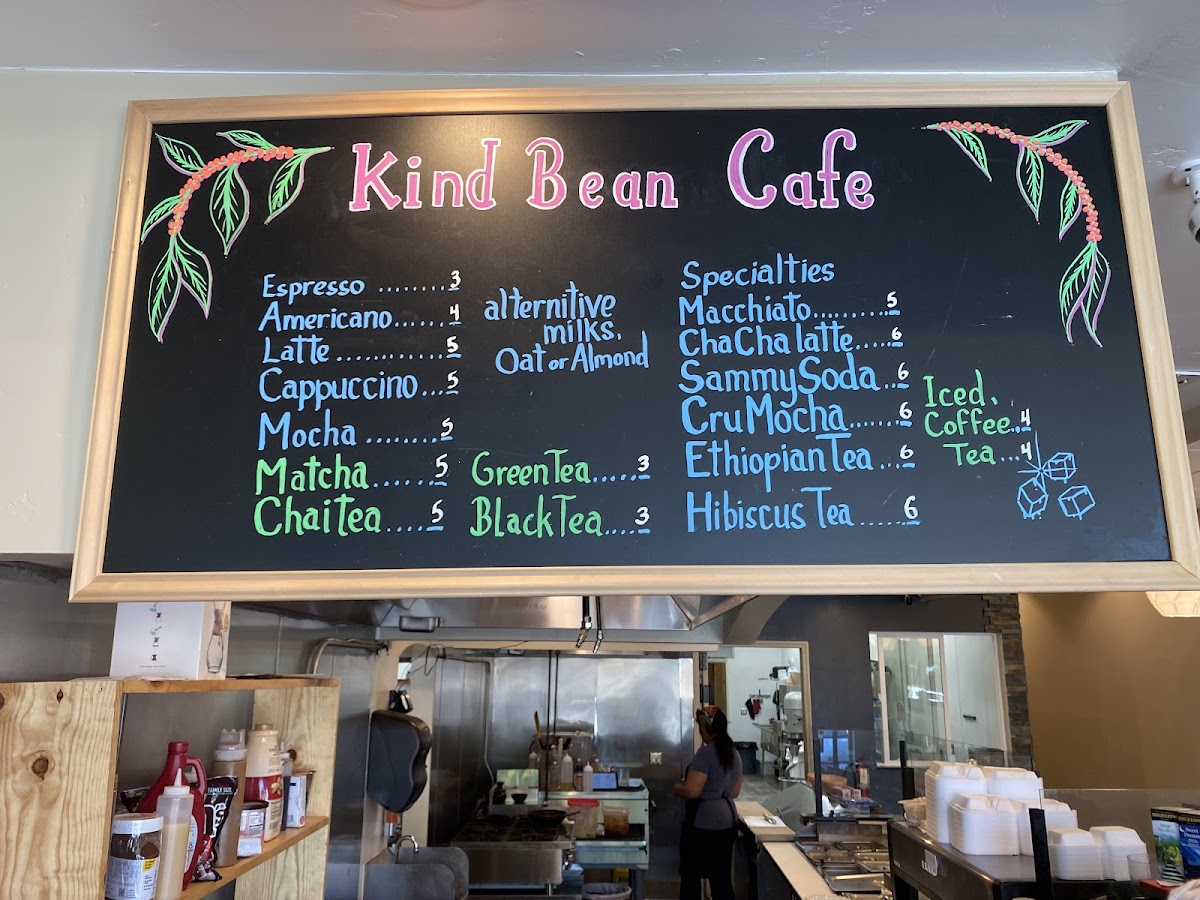 Kind Bean Cafe
Espresso ........ 3
Americano...... 4
Latte ............. 5
Cappuccino... 5
Mocha ........ 5
Matcha...... 5
Chai tea ..... 5
alternitive
milks,
Oat or Almond
Green Tea..... 3
Black Tea.... 3
Specialties
Macchiato.......... 5
ChaCha latte..... 6
Sammy Soda .. 6
Cru Mocha....... 6
Ethiopian Tea ... 6
Hibiscus Tea ...... 6
Iced,
Coffee.. 4
Tea ... 4
FAMILY SIZE